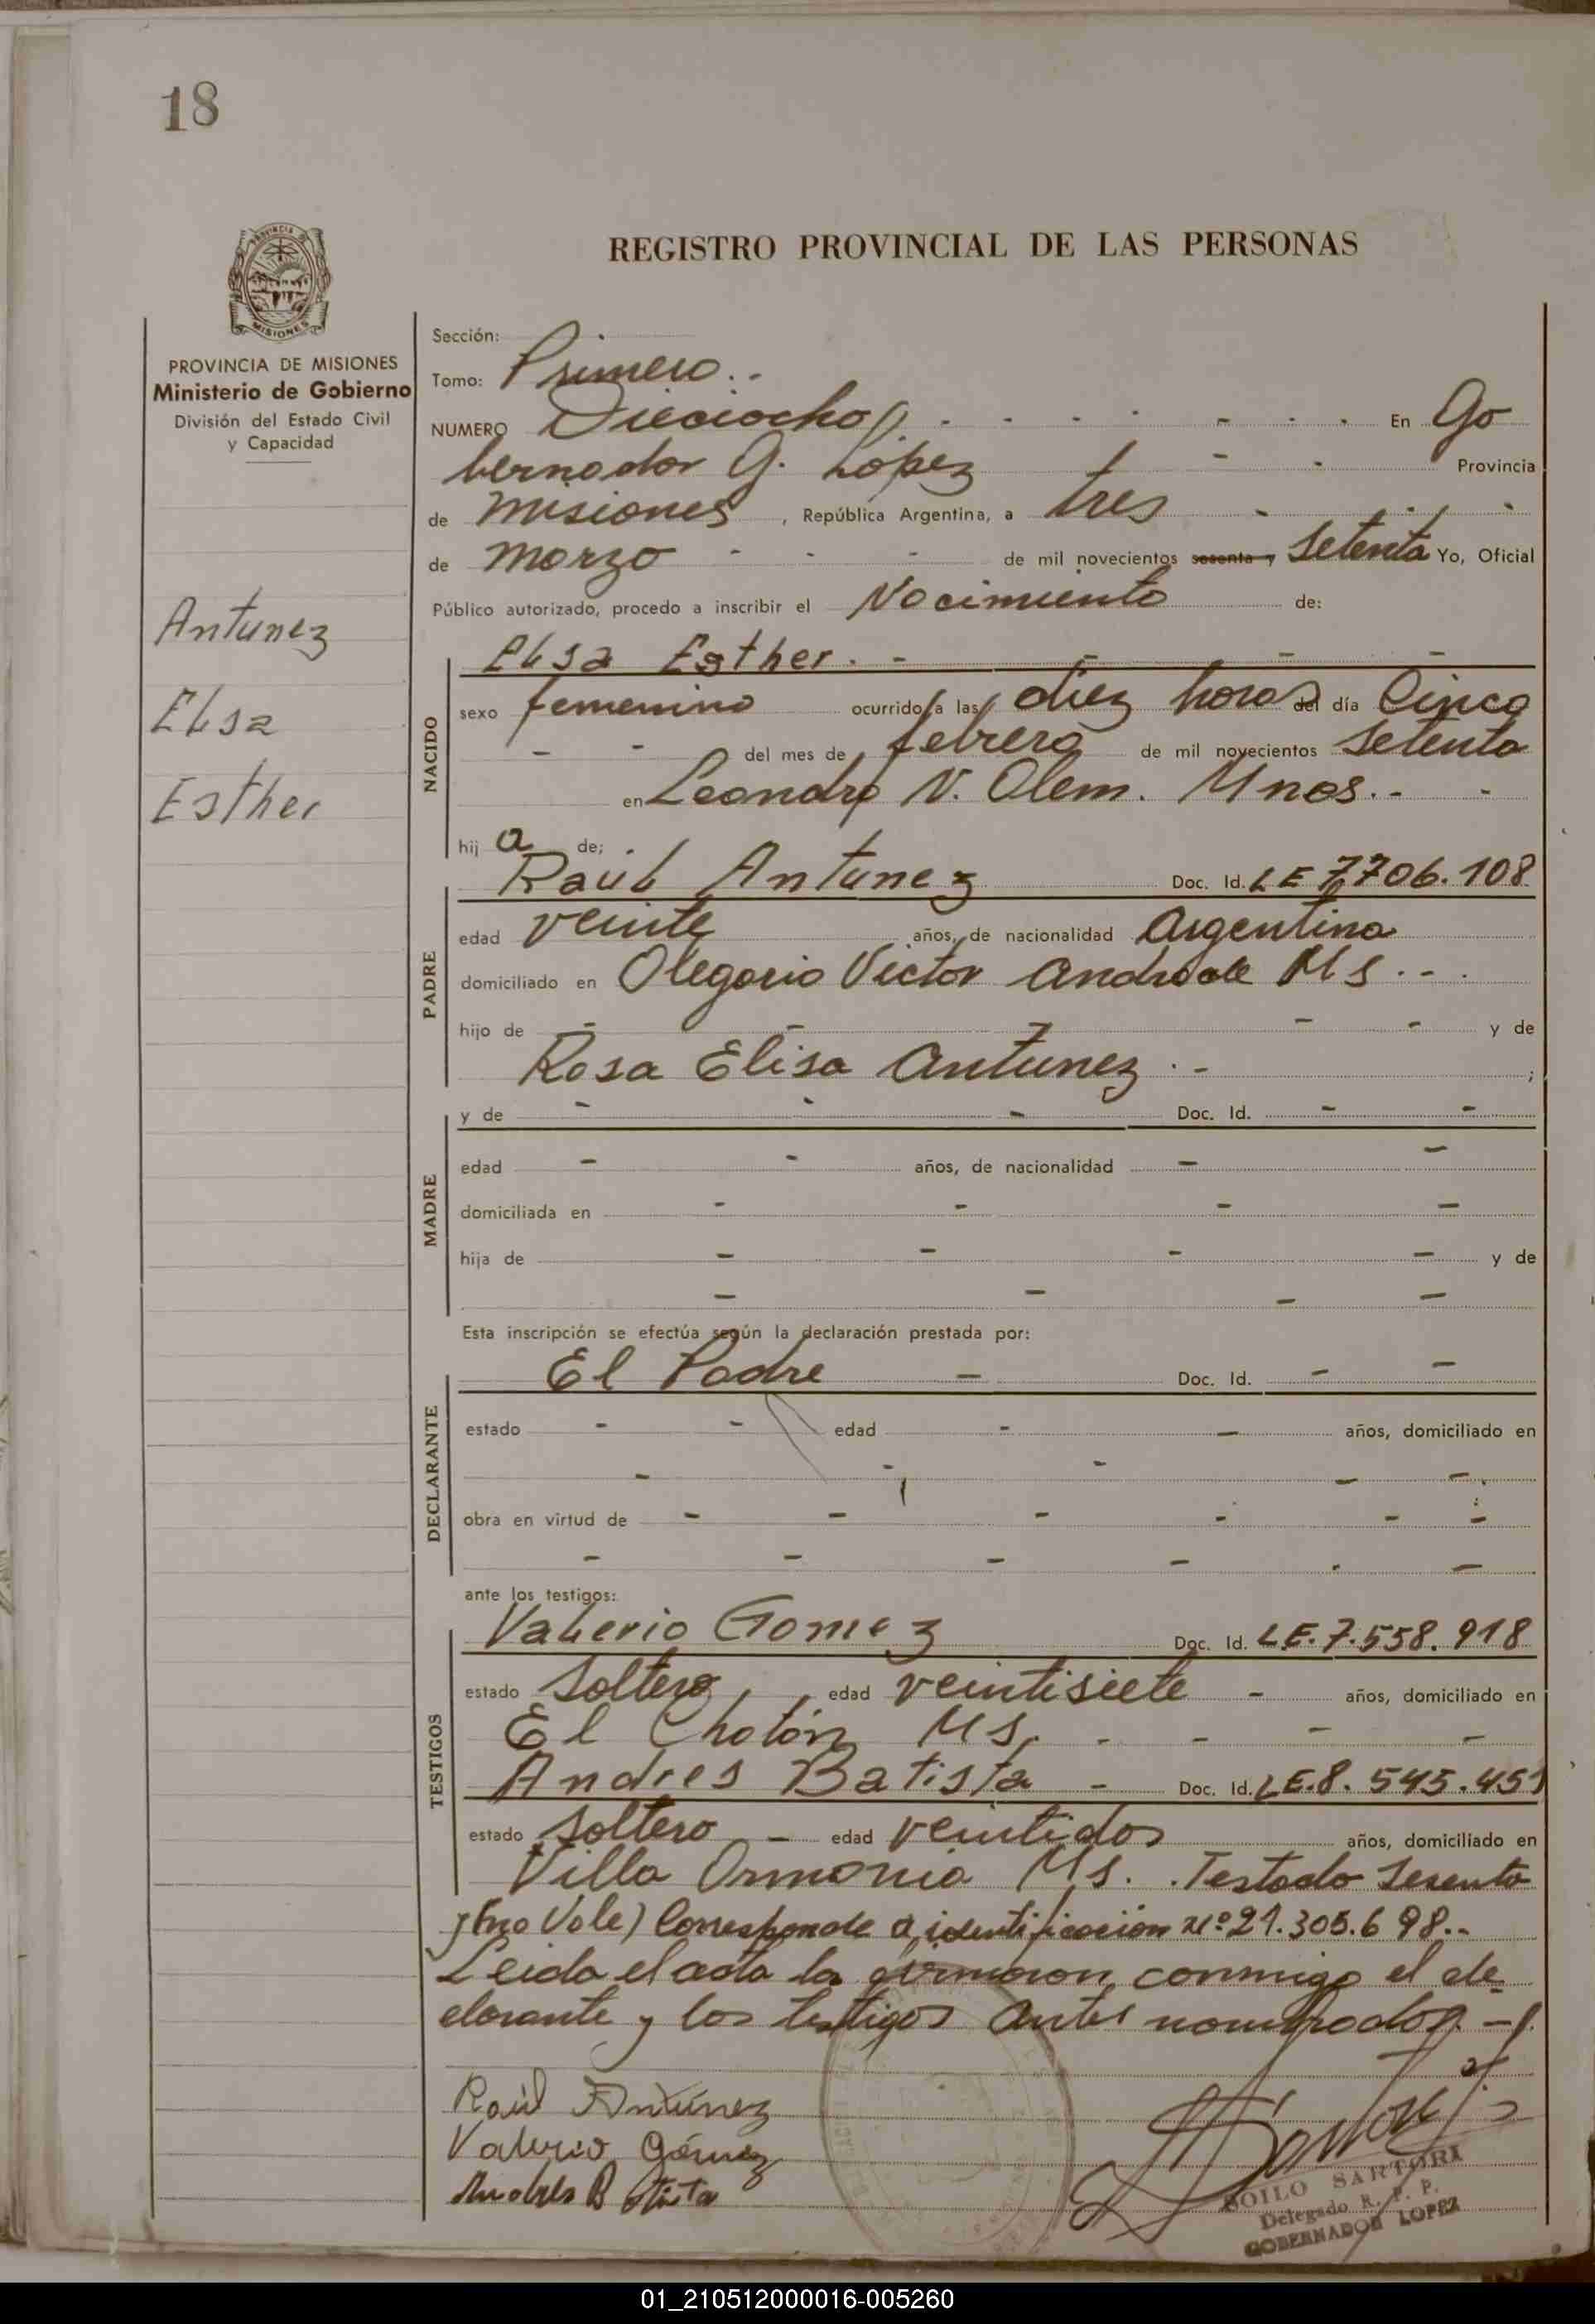 18
REGISTRO PROVINCIAL DE LAS PERSONAS
PROVINCIA
MISIONES
PROVINCIA DE MISIONES
Ministerio de Gobierno
División del Estado Civil
y Capacidad
Antunez
Elsa
Esther
Sección:
Tomo: Primero.-
NUMERO Dieciocho En Go
bernador G. López Provincia
de Misiones, República Argentina, a tres
de marzo de mil novecientos sesenta y Setenta Yo, Oficial
Público autorizado, procedo a inscribir el Nacimiento de:
NACIDO
Elsa Esther.-
sexo femenino ocurrido a las diez horas del día Cinco
del mes de febrero de mil novecientos Setenta
en Leandro N. Alem. Mnes.-
hij a de;
PADRE
Raúl Antunez Doc. Id. LE 7.706.108
edad veinte años, de nacionalidad Argentina
domiciliado en Olegario Victor Andrade Ms.-
hijo de - y de
Rosa Elisa Antunez.- ;
MADRE
y de - Doc. Id. -
edad - años, de nacionalidad -
domiciliada en -
hija de - y de
Esta inscripción se efectúa según la declaración prestada por:
DECLARANTE
El Padre - Doc. Id. -
estado - edad - años, domiciliado en
obra en virtud de -
ante los testigos:
TESTIGOS
Valerio Gomez Doc. Id. LE.7.558.918
estado Soltero, edad veintisiete - años, domiciliado en
El Chatón Ms.
Andres Batista - Doc. Id. LE.8.545.451
estado Soltero - edad veintidos años, domiciliado en
Villa Armonia Ms. Testado Sesenta
y (no Vale) Corresponde a identificación Nº 21.305.698.-
Leida el acta la firmaron conmigo el de
clarante y los testigos antes nombrados.-
Raúl Antúnez
Valerio Gómez
Andres Batista
ZOILO SARTORI
Delegado R. P. P.
GOBERNADOR LOPEZ
01_210512000016-005260